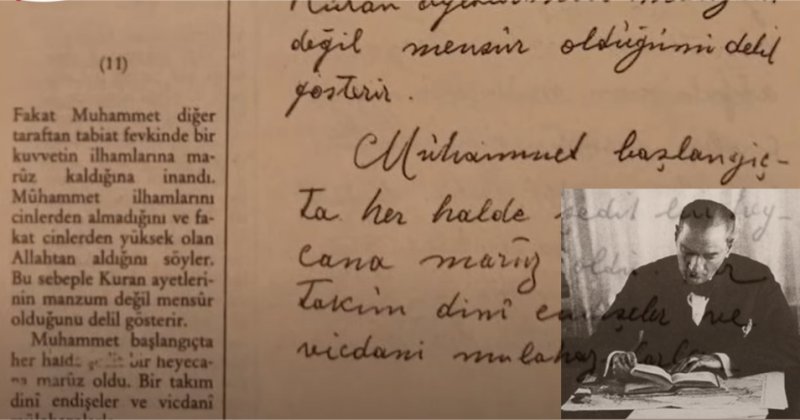 (11)
Fakat Muhammet diğer
taraftan tabiat fevkinde bir
kuvvetin ilhamlarına ma-
rûz kaldığına inandı.
Mûhammet ilhamlarını
cinlerden almadığını ve fa-
kat cinlerden yüksek olan
Allahtan aldığını söyler.
Bu sebeple Kuran ayetleri-
nin manzum değil mensûr
olduğunu delil gösterir.
Muhammet başlangıçta
her halde şedit bir heyeca-
na marûz oldu. Bir takım
dinî endişeler ve vicdanî
Kûran ayetlerinin
değil mensûr oldûğûnû delil
gösterir.
Mûhammet başlangıç-
ta her halde şedit bir hey-
cana marûz oldu. Bir
takım dinî endişeler ve
vicdani